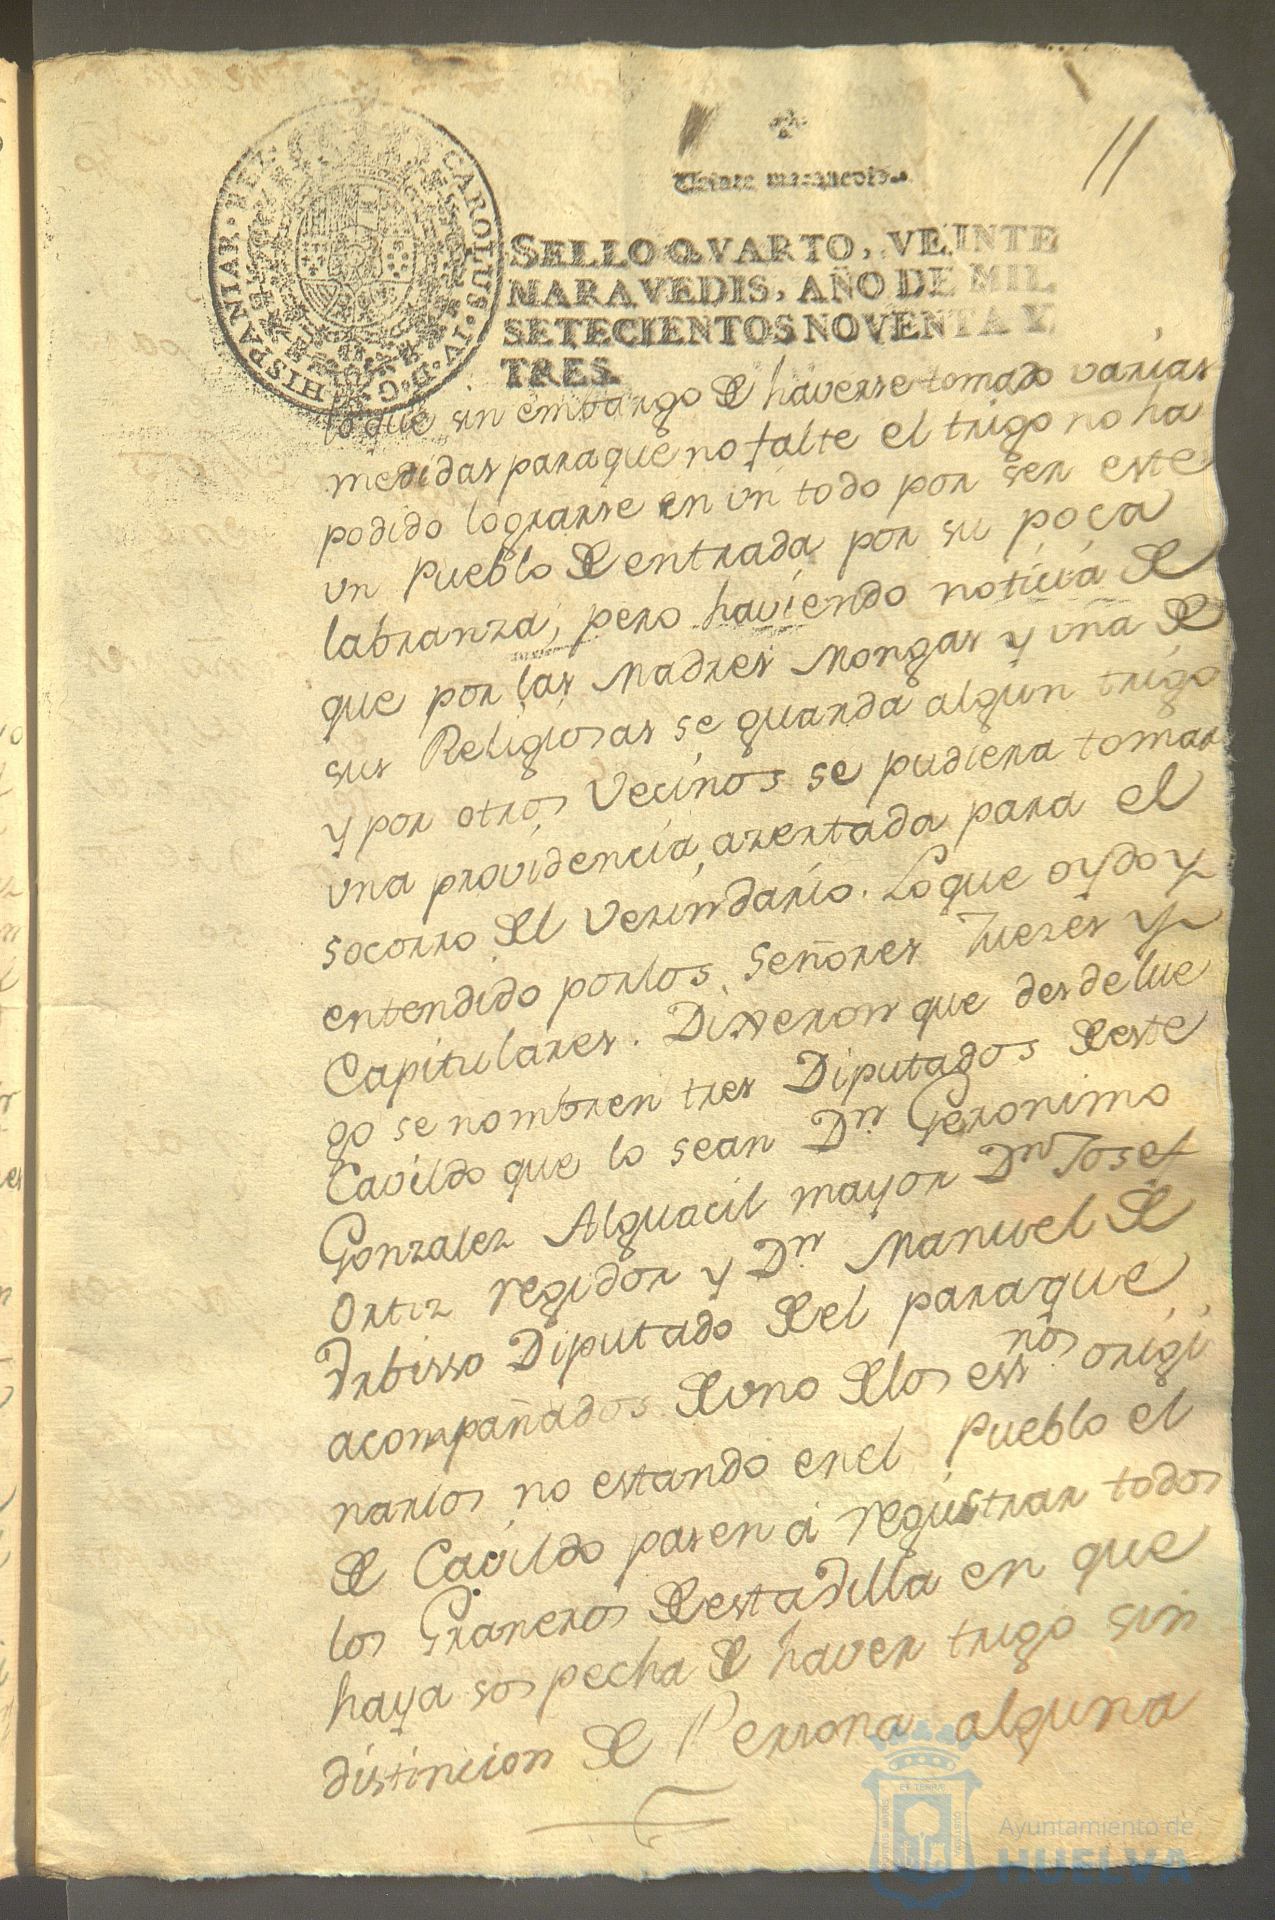 11
Veinte maravedis.
HISPANIAR. REX. CAROLUS. IV. D. G.
SELLO QVARTO, VEINTE
MARAVEDIS, AÑO DE MIL
SETECIENTOS NOVENTA Y
TRES.
lo que sin embargo de haverse tomado varias
medidas para que no falte el trigo no ha
podido lograrse en un todo por ser este
un Pueblo de entrada por su poca
labranza, pero haviendo noticia de
que por las Madres Mongas y una de
sus Religiosas se guarda algun trigo
y por otros Vecinos se pudiera tomar
una providencia azertada para el
socorro del Vezindario. Lo que oydo y
entendido por los Señores Juezes y
Capitulares. Dixeron que desde lue
go se nombren tres Diputados de este
Cavildo que lo sean Dn Geronimo
Gonzalez Alguacil mayor Dn Josef
Ortiz regidor y Dn Manuel de
Urbisso Diputado de el para que
acompañados de uno de los essnos origi
narios no estando en el Pueblo el
de Cavildo pasen a registrar todos
los Graneros de esta Villa en que
haya sospecha de haver trigo sin
distincion de Persona alguna
Ayuntamiento de
HUELVA